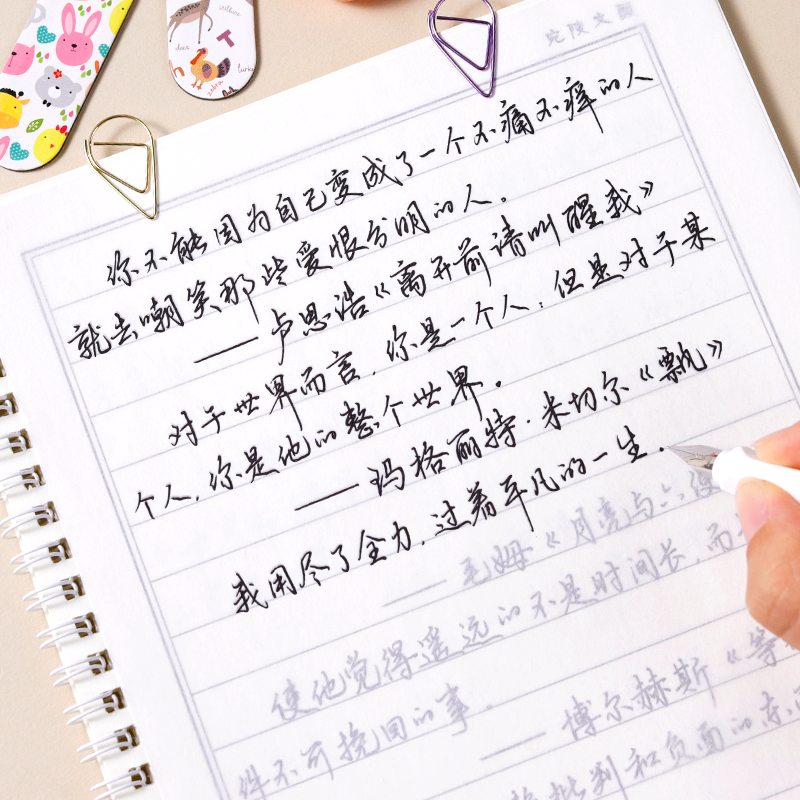 你不能因为自己变成了一个不痛不痒的人
就去嘲笑那些爱恨分明的人。
——卢思浩《离开前请叫醒我》
对于世界而言,你是一个人;但是对于某
个人,你是他的整个世界。
——玛格丽特·米切尔《飘》
我用尽了全力,过着平凡的一生。
——毛姆《月亮与六便
使他觉得遥远的不是时间长,而
件不可挽回的事。
——博尔赫斯《等
批判和负面的东
deer
turkey
zebra